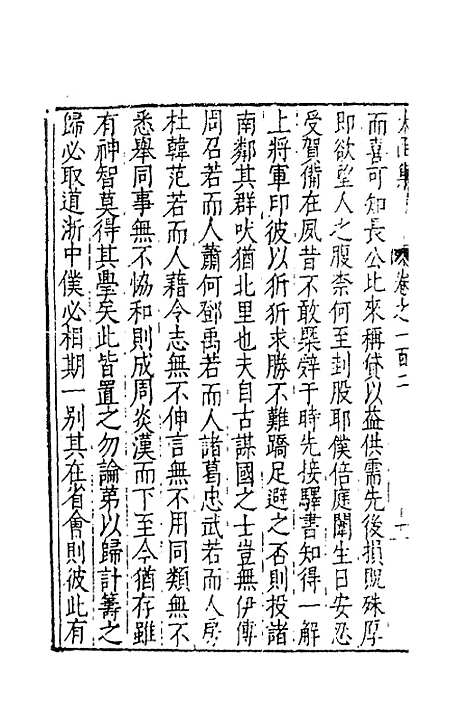 太函集 卷之一百二
而喜可知長公比來稱貸以益供需先後損貺殊厚
即欲望人之腹柰何至刲股耶僕倍庭闈生日安忍
受賀備在夙昔不敢槩辭干時先接驛書知得一解
上將軍印彼以狾狾求勝不難蹻足避之否則投諸
南鄰其群吠猶北里也夫自古謀國之士豈無伊傳
周召若而人蕭何鄧禹若而人諸葛忠武若而人房
杜韓范若而人藉令志無不伸言無不用同類無不
悉舉同事無不恊和則成周炎漢而下至今猶存雖
有神智莫得其學矣此皆置之勿論第以歸計籌之
歸必取道浙中僕必相期一别其在省會則彼此有